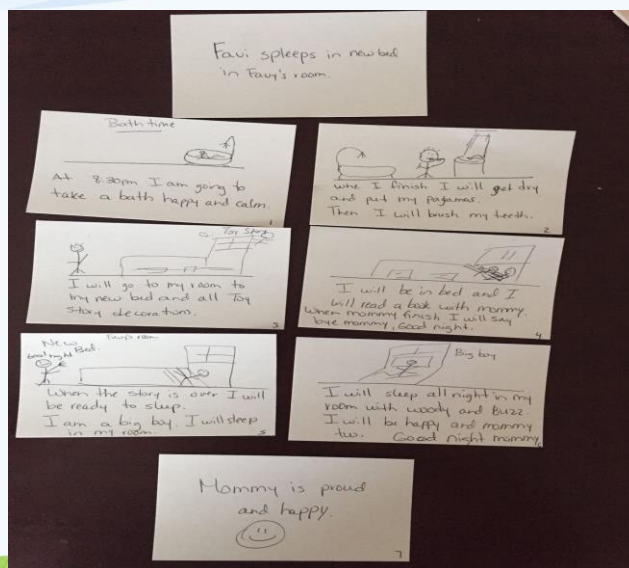 Favi spleeps in new bed
in Favy's room.
Bath time
At 8:30pm I am going to
take a bath happy and calm.
1
whe I finish I will get dry
and put my pajamas.
Then I will brush my teeth.
2
Toy Story
I will go to my room to
my new bed and all Toy
story decorations.
3
I will be in bed and I
will read a book with mommy.
When mommy finish I will say
bye mommy, Good night.
4
New Bed.
room
Good night
When the story is over I will
be ready to sleep.
I am a big boy. I will sleep
in my room.
5
Big boy
I will sleep all night in my
room with woody and Buzz.
I will be happy and mommy
two. Good night mommy
6
Mommy is proud
and happy.
7